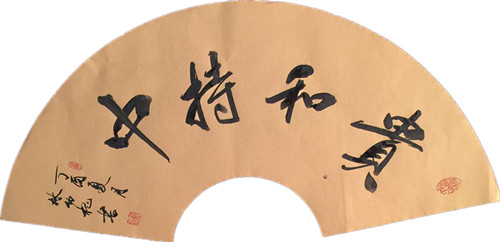 貴和持中
丁酉夏月
書